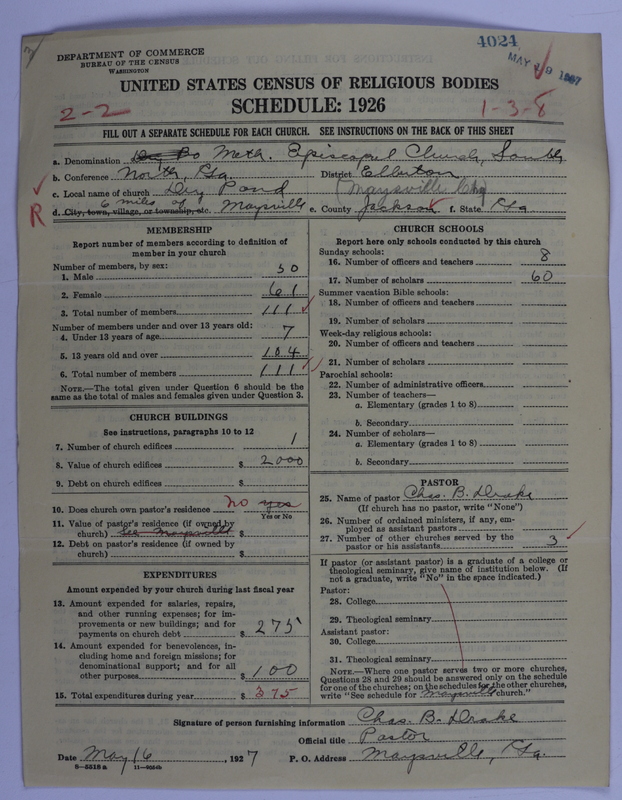 4024
MAY 19 1927
DEPARTMENT OF COMMERCE
BUREAU OF THE CENSUS
WASHINGTON
UNITED STATES CENSUS OF RELIGIOUS BODIES
SCHEDULE: 1926
2-2
1-3-8
FILL OUT A SEPARATE SCHEDULE FOR EACH CHURCH. SEE INSTRUCTIONS ON THE BACK OF THIS SHEET
a. Denomination Meth. Episcopal Church, South
b. Conference North, Ga. District Elberton
c. Local name of church Dry Pond (Maysville
R
d. City, town, village, or township, etc. 6 miles of Maysville e. County Jackson f. State Ga
MEMBERSHIP
Report number of members according to definition of
member in your church
Number of members, by sex:
1. Male 50
2. Female 61
3. Total number of members 111
Number of members under and over 13 years old:
4. Under 13 years of age 7
5. 13 years old and over 104
6. Total number of members 111
NOTE.—The total given under Question 6 should be the
same as the total of males and females given under Question 3.
CHURCH BUILDINGS
See instructions, paragraphs 10 to 12
7. Number of church edifices 1
8. Value of church edifices $ 2000
9. Debt on church edifices $
10. Does church own pastor's residence no yes
Yes or No
11. Value of pastor's residence (if owned by
church) See Maysville $
12. Debt on pastor's residence (if owned by
church) $
EXPENDITURES
Amount expended by your church during last fiscal year
13. Amount expended for salaries, repairs,
and other running expenses; for im-
provements or new buildings; and for
payments on church debt $ 275
14. Amount expended for benevolences, in-
cluding home and foreign missions; for
denominational support; and for all
other purposes $ 100
15. Total expenditures during year $ 375
CHURCH SCHOOLS
Report here only schools conducted by this church
Sunday schools:
16. Number of officers and teachers 8
17. Number of scholars 60
Summer vacation Bible schools:
18. Number of officers and teachers
19. Number of scholars
Week-day religious schools:
20. Number of officers and teachers
21. Number of scholars
Parochial schools:
22. Number of administrative officers
23. Number of teachers—
a. Elementary (grades 1 to 8)
b. Secondary
24. Number of scholars—
a. Elementary (grades 1 to 8)
b. Secondary
PASTOR
25. Name of pastor Chas. B. Drake
(If church has no pastor, write "None")
26. Number of ordained ministers, if any, em-
ployed as assistant pastors
27. Number of other churches served by the
pastor or his assistants 3
If pastor (or assistant pastor) is a graduate of a college or
theological seminary, give name of institution below. (If
not a graduate, write "No" in the space indicated.)
Pastor:
28. College
29. Theological seminary
Assistant pastor:
30. College
31. Theological seminary
NOTE.—Where one pastor serves two or more churches,
Questions 28 and 29 should be answered only on the schedule
for one of the churches; on the schedules for the other churches,
write "See schedule for Maysville church."
Signature of person furnishing information Chas. B. Drake
Official title Pastor
Date May 16, 1927 P. O. Address Maysville, Ga.
8—5516 a